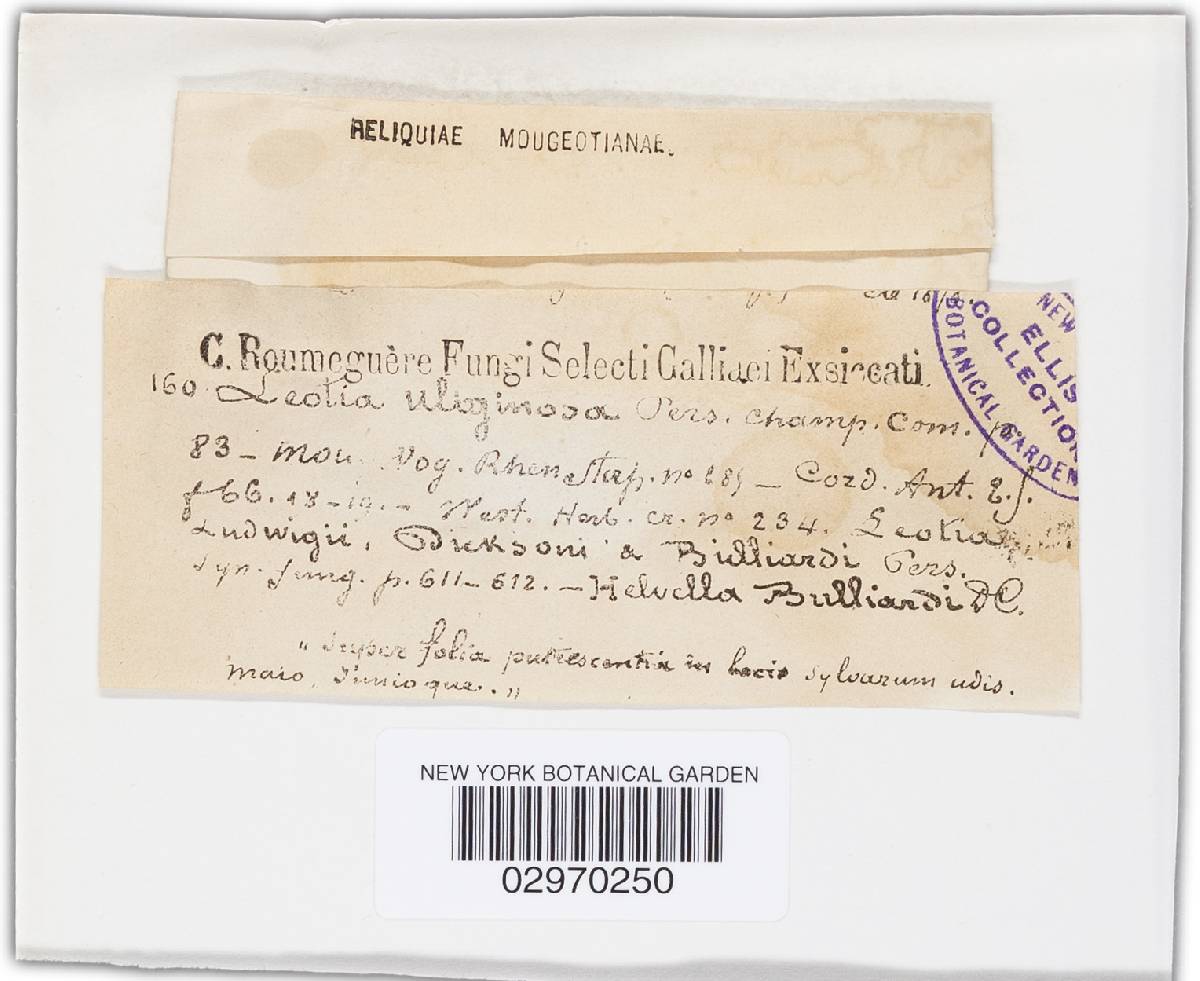 RELIQUIAE MOUGEOTIANAE.
C. Roumeguère Fungi Selecti Galliaei Exsiccati.
160. Leotia uliginosa Pers. champ. com. p.
83 – Mou. Vog. Rhen. Stirp. nº 689 – Cord. Ant. 2. f.
f 66. 18–19. – West. Herb. cr. nº 234. Leotia
Ludwigii, Dicksoni & Bulliardi Pers.
Syn. fung. p. 611–612. – Helvella Bulliardi DC.
„ super folia putrescentia in locis sylvarum udis.
Maio, Junioque. „
NEW
BOTANICAL GARDEN
ELLIS
COLLECTION
NEW YORK BOTANICAL GARDEN
02970250